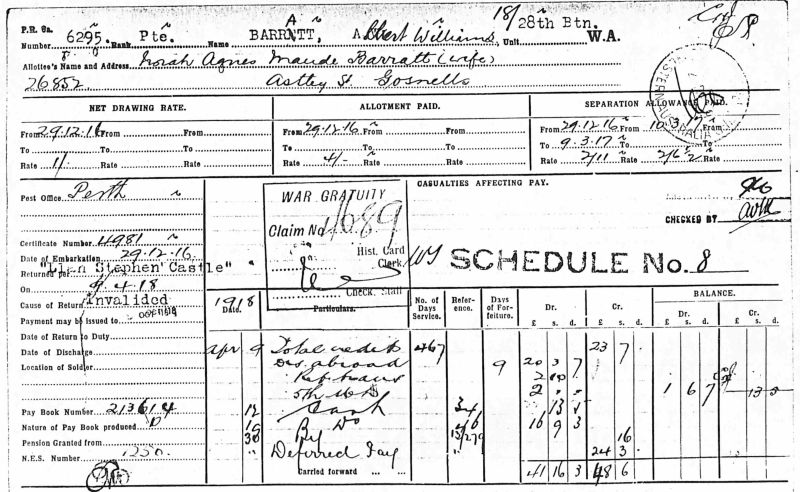 P.R. 8a.
Number 6295. Rank Pte. Name BARRATT, Albert Williams, Unit 18/28th Btn. W.A.
Allottee's Name and Address Norah Agnes Maude Barratt (wife)
26852 Astley St Gosnells
NET DRAWING RATE. ALLOTMENT PAID. SEPARATION ALLOWANCE PAID.
From 29.12.16 From From From 29.12.16 From From From 29.12.16 From 10.3.17 From
To To To To To To To 9.3.17 To To
Rate 1/- Rate Rate Rate 4/- Rate Rate Rate 2/11 Rate Rate
Post Office Perth
WAR GRATUITY
Claim No 1689
Hist. Card
Clerk
Check. Staff
CASUALTIES AFFECTING PAY.
CHECKED BY
SCHEDULE No. 8
Certificate Number 4981
Date of Embarkation 29.12.16
Returned per "Llan Stephen Castle"
On 9.4.18
Cause of Return Invalided
Payment may be issued to
Date of Return to Duty
Date of Discharge
Location of Soldier
Pay Book Number 213614
Nature of Pay Book produced D
Pension Granted from
N.E.S. Number 1250
1918
Date. Particulars. No. of Days Service. Reference. Days of Forfeiture. Dr. Cr. BALANCE.
Dr. Cr.
£ s. d. £ s. d. £ s. d. £ s. d.
Apr 9 Total credit 467 23 7
Des. abroad 9 20 3 7
1 6 7
12 Cash 34 13
19 Do 46
30 By 16
Deferred Pay 24 3
Carried forward 41 16 3 48 6